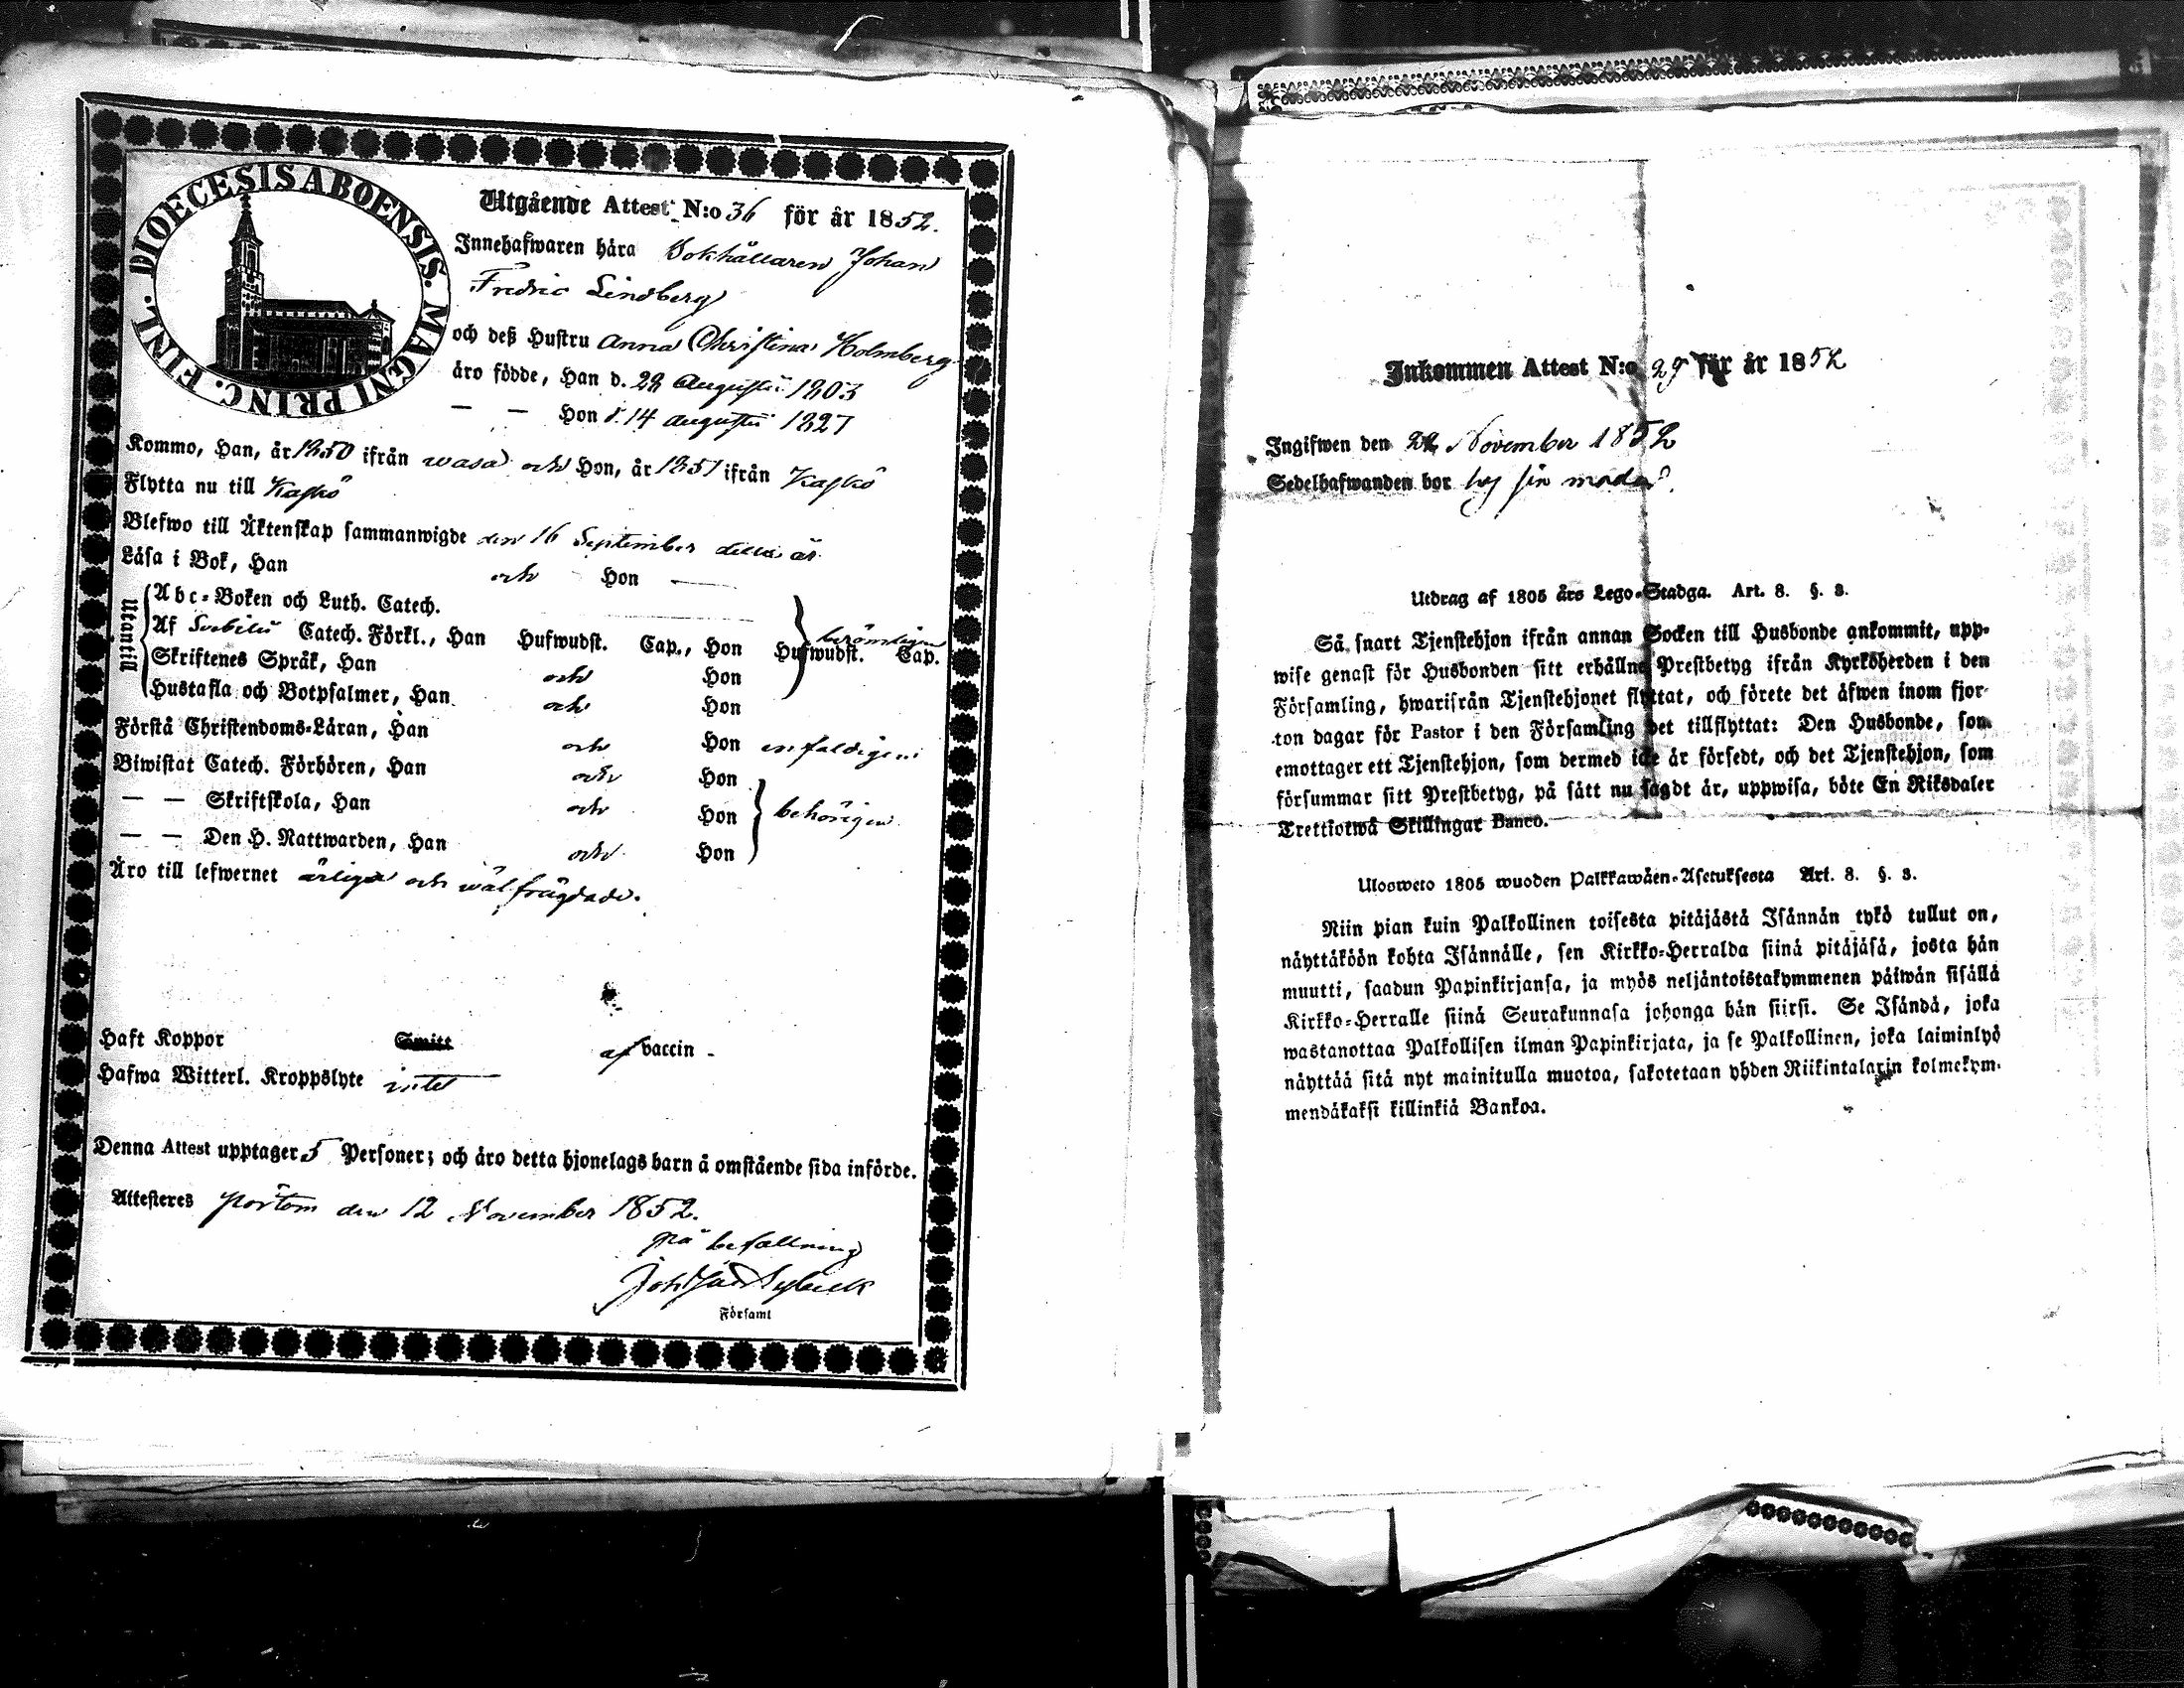 DIOECESIS ABOENSIS. MAGNI PRINC. FINL.
Utgående Attest N:o 36 för år 1852.
Innehafwaren håra Bokhållaren Johan
Fredric Lindberg
och deß Hustru Anna Christina Holmberg
äro födde, Han d. 28 Augustii 1803
— — Hon d. 14 Augustii 1827
Kommo, Han, år 1850 ifrån Wasa och Hon, år 1851 ifrån Kaskö
Flytta nu till Kaskö
Blefwo till Äktenskap sammanwigde den 16 September detta år
Läsa i Bok, Han och Hon —
Utantill
Abc-Boken och Luth. Catech.
Af Svebilii Catech. Förkl., Han Hufwudst. Cap., Hon Hufwudst. Cap.
berömligen
Skriftenes Språk, Han och Hon
Hustafla och Botpsalmer, Han och Hon
Förstå Christendoms-Läran, Han och Hon enfaldigen
Biwistat Catech. Förhören, Han och Hon
— — Skriftskola, Han och Hon behörigen
— — Den H. Nattwarden, Han och Hon
Äro till lefwernet ärliga och wälfrägdade.
Haft Koppor Smitt af vaccin -
Hafwa Witterl. Kroppslyte intet
Denna Attest upptager 5 Personer; och äro detta hjonelags barn å omstående sida införde.
Attesteres Pörtom den 12 November 1852.
på befallning
Församl
Inkommen Attest N:o 29 för år 1852
Ingifwen den 22 November 1852
Sedelhafwanden bor hos sin
Utdrag af 1805 års Lego-Stadga. Art. 8. §. 3.
Så snart Tjenstehjon ifrån annan Socken till Husbonde ankommit, upp-
wise genast för Husbonden sitt erhållne Prestbetyg ifrån Kyrkoherden i den
Församling, hwarifrån Tjenstehjonet flyttat, och förete det äfwen inom fjor-
ton dagar för Pastor i den Församling det tillflyttat: Den Husbonde, som
emottager ett Tjenstehjon, som dermed icke är försedt, och det Tjenstehjon, som
försummar sitt Prestbetyg, på sätt nu sagdt är, uppwisa, böte En Riksdaler
Trettiotwå Skillingar Banco.
Ulosweto 1805 wuoden Palkkawäen-Asetuksesta Art. 8. §. 3.
Niin pian kuin Palkollinen toisesta pitäjästä Isännän tykö tullut on,
näyttäköön kohta Isännälle, sen Kirkko-Herralda siinä pitäjäsä, josta hän
muutti, saadun Papinkirjansa, ja myös neljäntoistakymmenen päiwän sisällä
Kirkko-Herralle siinä Seurakunnasa johonga hän siirsi. Se Isändä, joka
wastanottaa Palkollisen ilman Papinkirjata, ja se Palkollinen, joka laiminlyö
näyttää sitä nyt mainitulla muotoa, sakotetaan yhden Riikintalarin kolmekym-
mendäkaksi killinkiä Bankoa.